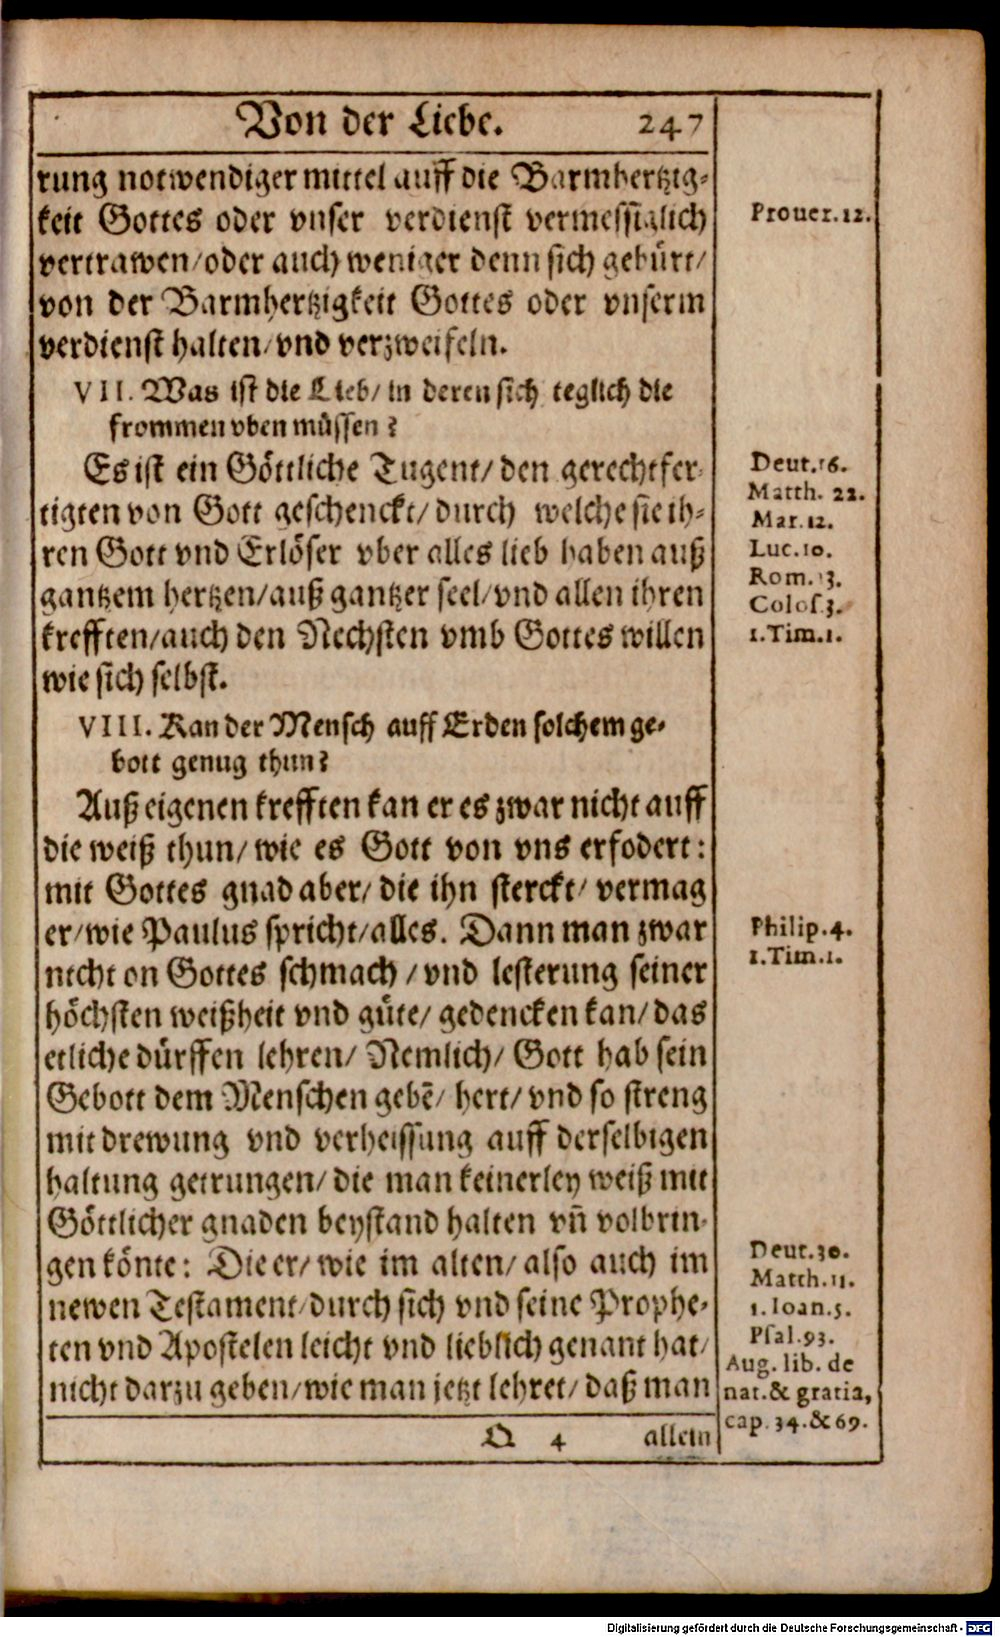 Von der Liebe. 247
rung notwendiger mittel auff die Barmhertzig-
keit Gottes oder vnser verdienst vermessiglich
vertrawen/oder auch weniger denn sich gebürt/
von der Barmhertzigkeit Gottes oder vnserm
verdienst halten/vnd verzweifeln.
Prouer.12.
VII. Was ist die Lieb/ in deren sich teglich die
frommen vben müssen?
Es ist ein Göttliche Tugent/ den gerechtfer-
tigten von Gott geschenckt/ durch welche sie ih-
ren Gott vnd Erlöser vber alles lieb haben auß
gantzem hertzen/auß gantzer seel/vnd allen ihren
krefften/auch den Nechsten vmb Gottes willen
wie sich selbst.
Deut.16.
Matth. 22.
Mar.12.
Luc.10.
Rom.13.
Colos.3.
1.Tim.1.
VIII. Kan der Mensch auff Erden solchem ge-
bott genug thun?
Auß eigenen krefften kan er es zwar nicht auff
die weiß thun/ wie es Gott von vns erfodert:
mit Gottes gnad aber/ die ihn sterckt/ vermag
er/wie Paulus spricht/alles. Dann man zwar
nicht on Gottes schmach / vnd lesterung seiner
höchsten weißheit vnd güte/ gedencken kan/ das
etliche dürffen lehren/ Nemlich/ Gott hab sein
Gebott dem Menschen gebē/ hert/ vnd so streng
mit drewung vnd verheissung auff derselbigen
haltung getrungen/ die man keinerley weiß mit
Göttlicher gnaden beystand halten vn̄ volbrin-
gen könte: Die er/ wie im alten/ also auch im
newen Testament/durch sich vnd seine Prophe-
ten vnd Apostelen leicht vnd lieblich genant hat/
nicht darzu geben/wie man jetzt lehret/ daß man
Philip.4.
1.Tim.1.
Deut.30.
Matth.11.
1.Ioan.5.
Psal.93.
Aug. lib. de
nat.& gratia,
cap.34.&69.
Q 4 allein
Digitalisierung gefördert durch die Deutsche Forschungsgemeinschaft - DFG